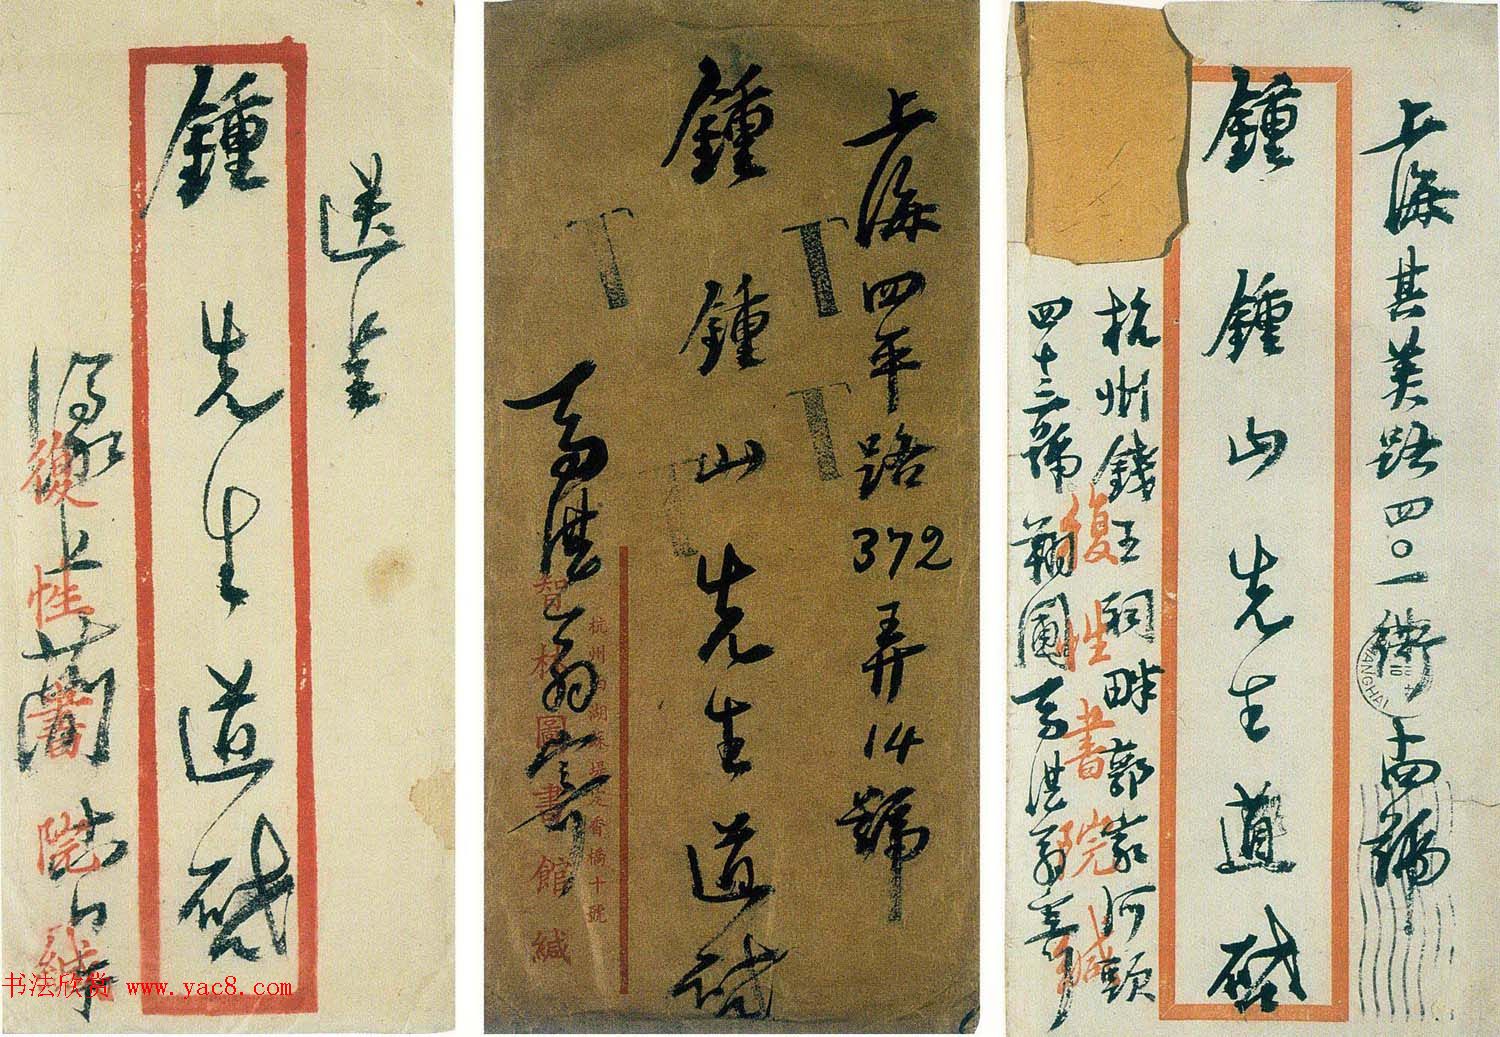 送呈
鍾先生道啟
復性書院緘
上海四平路372弄14號
鍾鍾山先生道啟
杭州西湖蘇堤定香橋十號
智林圖書館緘
馬湛翁寄
上海其美路四〇一衖十四號
鍾鍾山先生道啟
杭州錢王祠畔郭家河頭
四十三號蔣圃馬湛翁寄
復性書院緘
SHANGHAI
书法欣赏 www.yac8.com